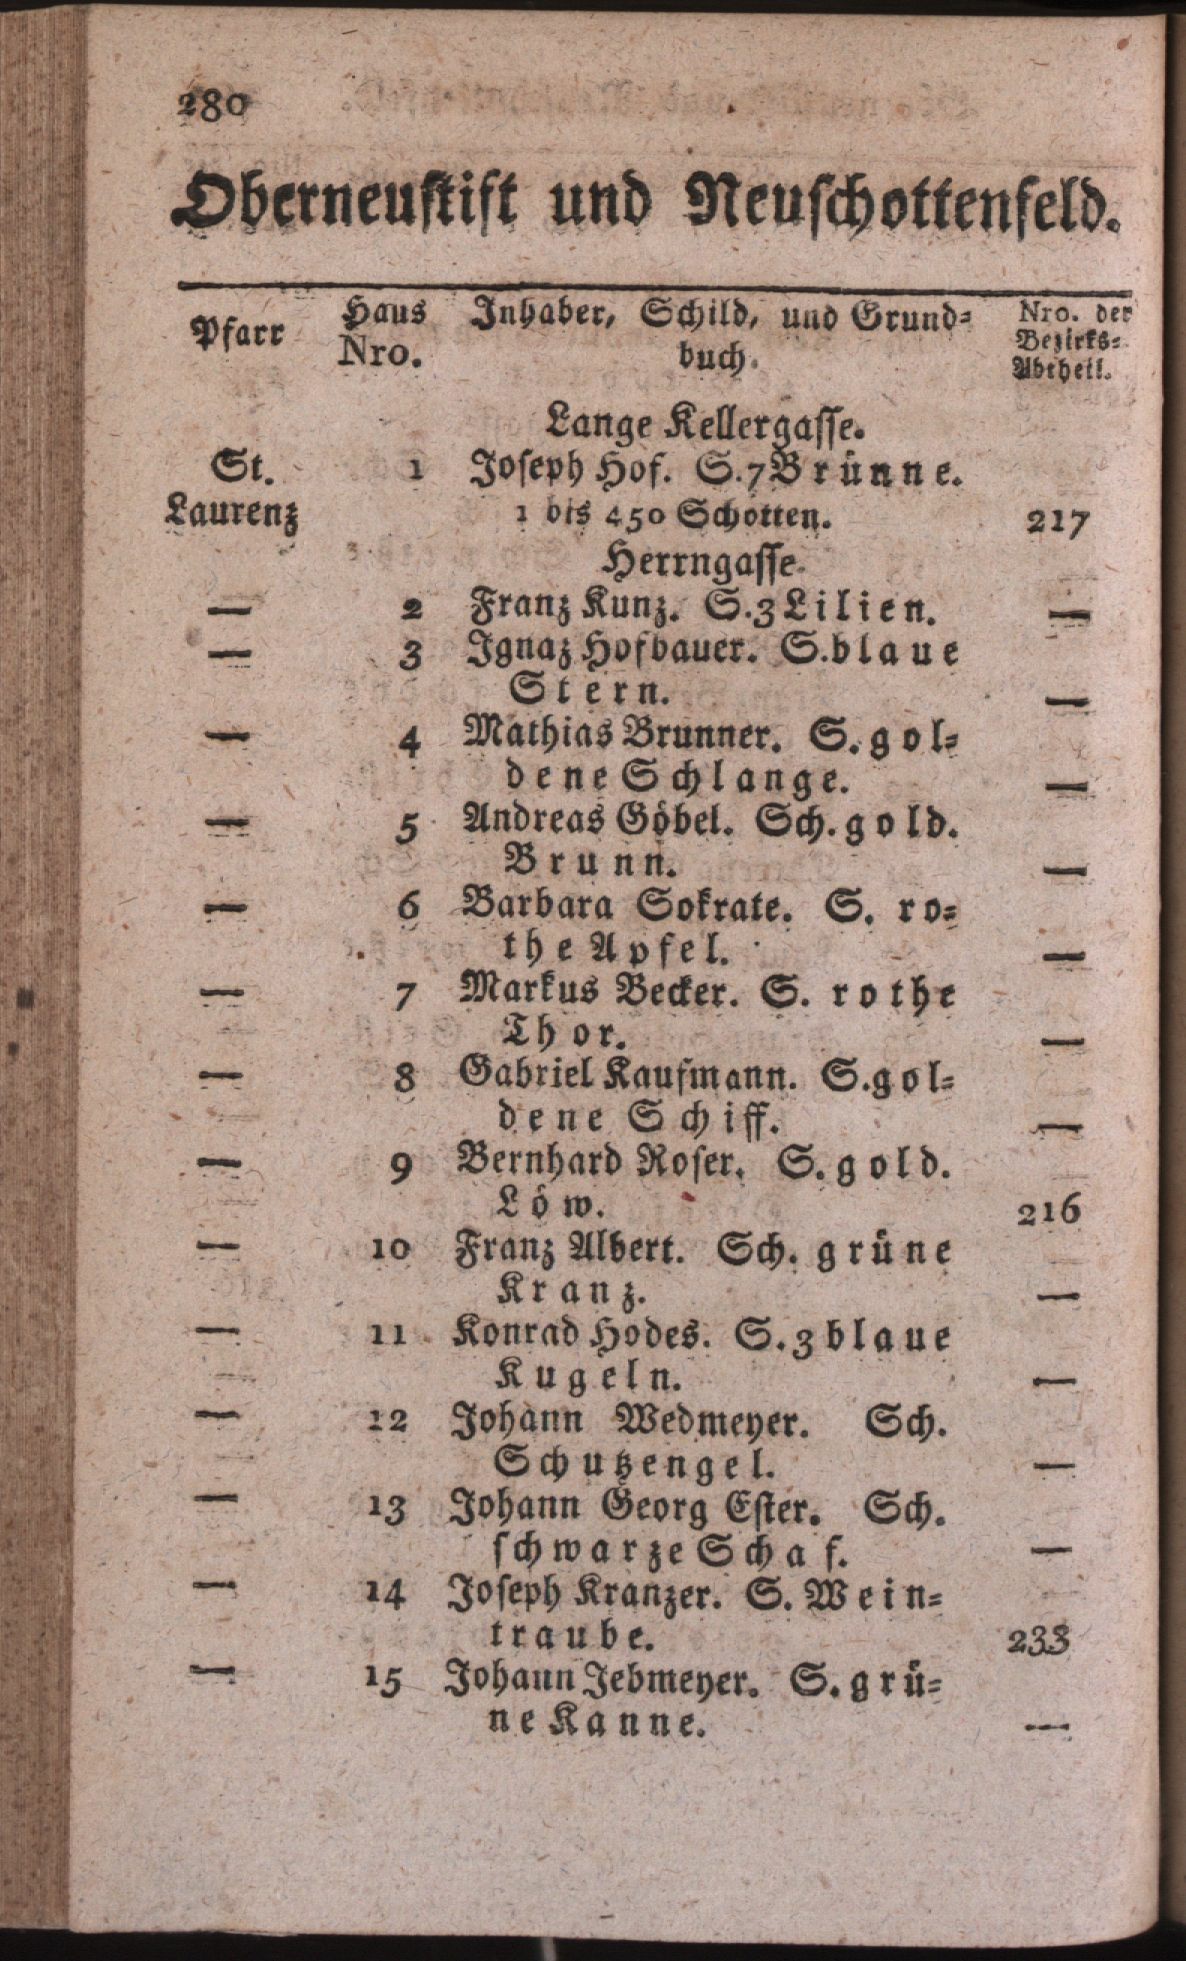 280
Oberneustift und Neuschottenfeld.
Pfarr Haus Nro. Inhaber, Schild, und Grund= buch. Nro. der Bezirks= Abtheil.
Lange Kellergasse.
St. 1 Joseph Hof. S. 7 Brünne.
Laurenz 1 bis 450 Schotten. 217
Herrngasse.
— 2 Franz Kunz. S. 3 Lilien. —
— 3 Ignaz Hofbauer. S. blaue
Stern. —
— 4 Mathias Brunner. S. gol=
dene Schlange. —
— 5 Andreas Göbel. Sch. gold.
Brunn. —
— 6 Barbara Sokrate. S. ro=
the Apfel. —
— 7 Markus Becker. S. rothe
Thor. —
— 8 Gabriel Kaufmann. S. gol=
dene Schiff. —
— 9 Bernhard Roser. S. gold.
Löw. 216
— 10 Franz Albert. Sch. grüne
Kranz. —
— 11 Konrad Hodes. S. 3 blaue
Kugeln. —
— 12 Johann Wedmeyer. Sch.
Schutzengel. —
— 13 Johann Georg Ester. Sch.
schwarze Schaf. —
— 14 Joseph Kranzer. S. Wein=
traube. 233
— 15 Johann Jebmeyer. S. grü=
ne Kanne. —